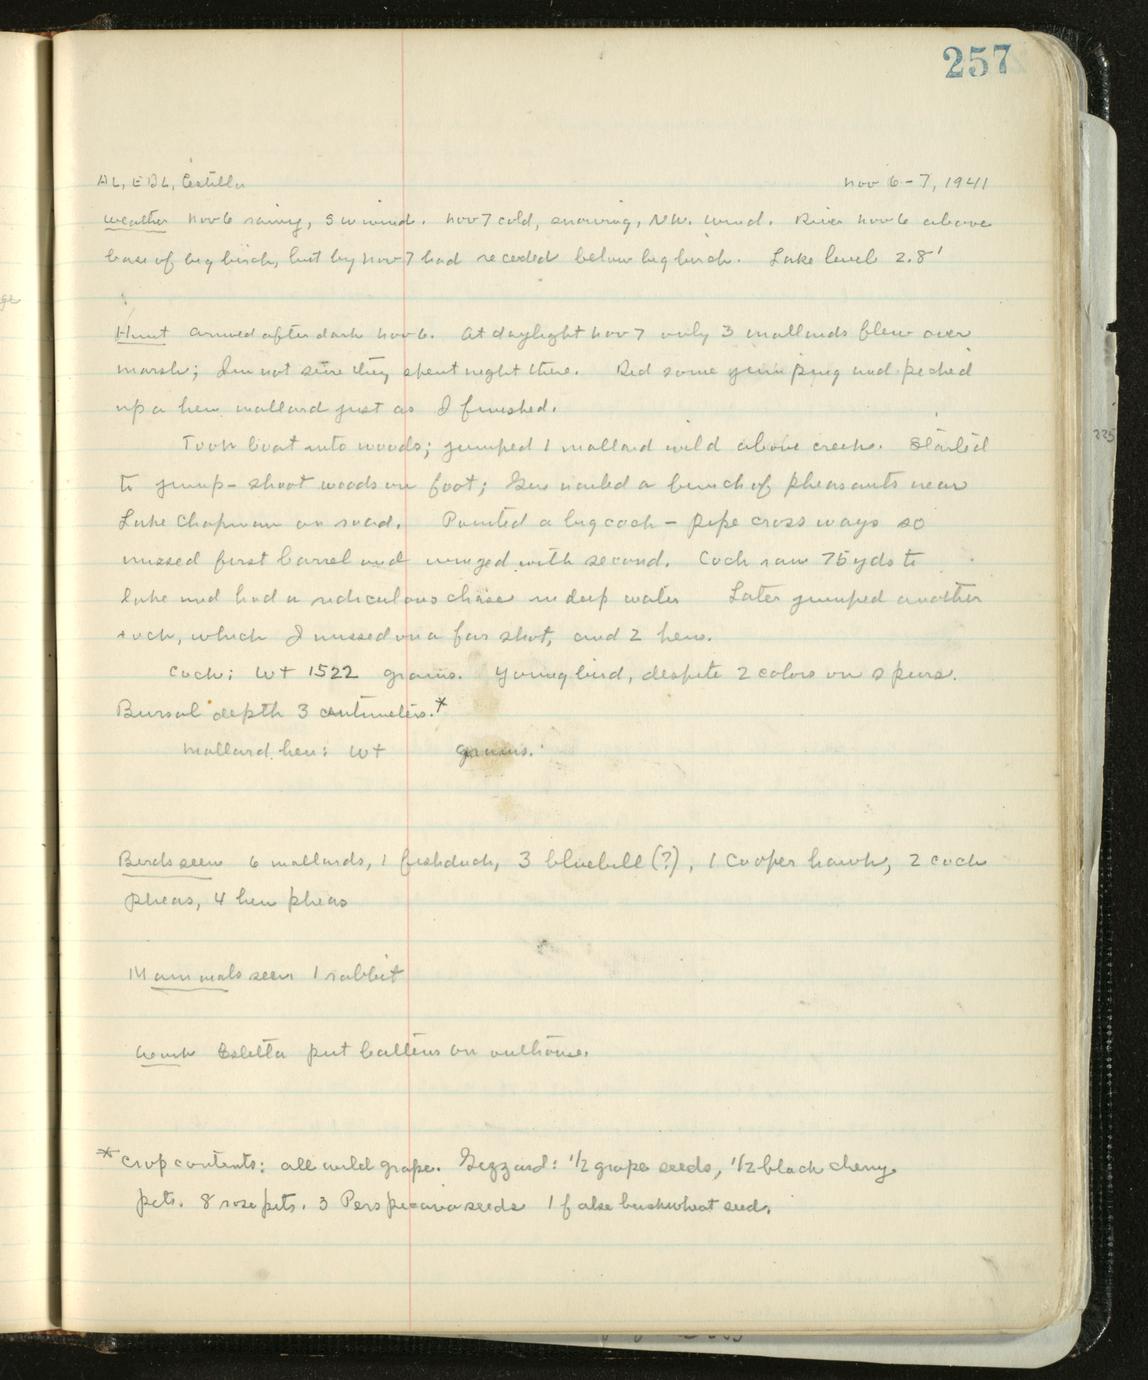 257
AL, EBL, Estella Nov 6-7, 1941
Weather Nov 6 rainy, SW wind. Nov 7 cold, snowing, NW. wind. River Nov 6 above
base of big birch, but by Nov 7 had receded below big birch. Lake level 2.8'
Hunt Arrived after dark Nov 6. At daylight Nov 7 only 3 mallards flew over
marsh; I'm not sure they spent night there. Did some and picked
up a hen mallard just as I finished.
Took boat into woods; jumped 1 mallard wild above creek. Started
to jump-shoot woods on foot; Gus nailed a bunch of pheasants near
Lake Chapman on road. Pointed a big cock - pipe cross ways so
missed first barrel and winged with second. Cock ran 75 yds to
lake and had a ridiculous chase in deep water Later jumped another
cock, which I missed on a far shot, and 2 hens.
Cock: Wt 1522 grams. Young bird, despite 2 colors on spurs.
Bursal depth 3 centimeters.*
Mallard hen: Wt grams.
Birds seen 6 mallards, 1 fishduck, 3 bluebill (?), 1 Cooper hawk, 2 cock
pheas, 4 hen pheas
Mammals seen 1 rabbit
Work Estella put battens on outhouse.
* Crop contents: all wild grape. Gizzard: 1/2 grape seeds, 1/2 black cherry
pits. 8 rose pits. 3 Persicaria seeds 1 false buckwheat seed.
225